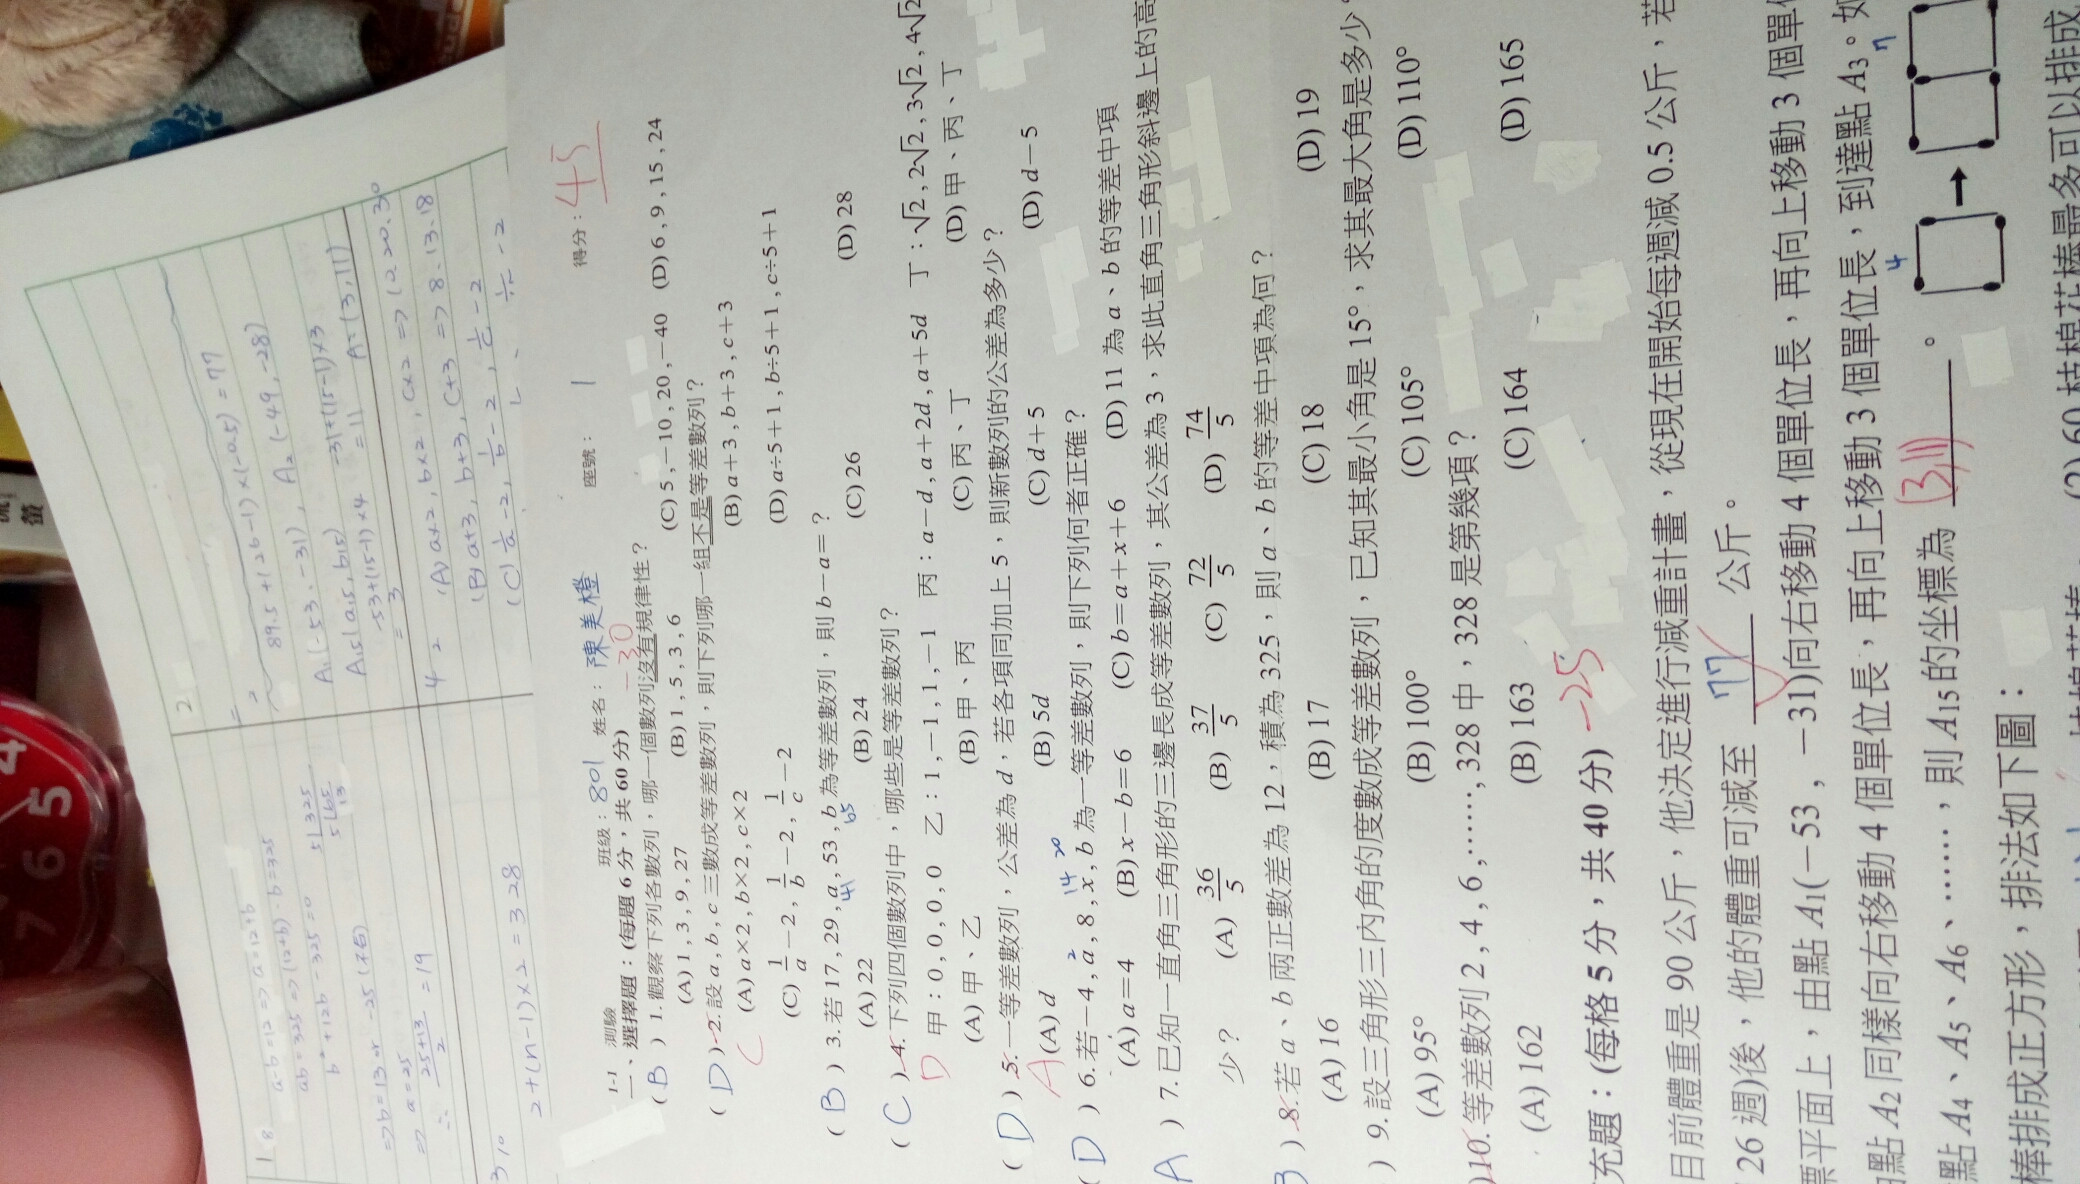 1-1 測驗 班級：801 姓名：陳美橙 座號：1 得分：45
一、選擇題：(每題 6 分，共 60 分) -30
( B ) 1. 觀察下列各數列，哪一個數列沒有規律性？
(A) 1 , 3 , 9 , 27 (B) 1 , 5 , 3 , 6 (C) 5 , －10 , 20 , －40 (D) 6 , 9 , 15 , 24
( D ) 2. 設 a , b , c 三數成等差數列，則下列哪一組不是等差數列？
C
(A) a×2 , b×2 , c×2 (B) a＋3 , b＋3 , c＋3
(C) 1/a－2 , 1/b－2 , 1/c－2 (D) a÷5＋1 , b÷5＋1 , c÷5＋1
( B ) 3. 若 17 , 29 , a , 53 , b 為等差數列，則 b－a＝？
41 65
(A) 22 (B) 24 (C) 26 (D) 28
( C ) 4. 下列四個數列中，哪些是等差數列？
D
甲：0 , 0 , 0 , 0 乙：1 , －1 , 1 , －1 丙：a－d , a＋2d , a＋5d 丁：√2 , 2√2 , 3√2 , 4√2
(A) 甲、乙 (B) 甲、丙 (C) 丙、丁 (D) 甲、丙、丁
( D ) 5. 一等差數列，公差為 d，若各項同加上 5，則新數列的公差為多少？
A
(A) d (B) 5d (C) d＋5 (D) d－5
( D ) 6. 若－4 , a , 8 , x , b 為一等差數列，則下列何者正確？
2 14 20
(A) a＝4 (B) x－b＝6 (C) b＝a＋x＋6 (D) 11 為 a、b 的等差中項
A ) 7. 已知一直角三角形的三邊長成等差數列，其公差為 3，求此直角三角形斜邊上的高
少？ (A) 36/5 (B) 37/5 (C) 72/5 (D) 74/5
) 8. 若 a、b 兩正數差為 12，積為 325，則 a、b 的等差中項為何？
(A) 16 (B) 17 (C) 18 (D) 19
) 9. 設三角形三內角的度數成等差數列，已知其最小角是 15°，求其最大角是多少
(A) 95° (B) 100° (C) 105° (D) 110°
)10. 等差數列 2 , 4 , 6 , ⋯⋯ , 328 中，328 是第幾項？
(A) 162 (B) 163 (C) 164 (D) 165
充題：(每格 5 分，共 40 分) -25
目前體重是 90 公斤，他決定進行減重計畫，從現在開始每週減 0.5 公斤，若
26 週)後，他的體重可減至 77 公斤。
票平面上，由點 A1(－53 , －31)向右移動 4 個單位長，再向上移動 3 個單
點 A2 同樣向右移動 4 個單位長，再向上移動 3 個單位長，到達點 A3。如
點 A4、A5、A6、⋯⋯，則 A15 的坐標為 (3,11) 。
棒排成正方形，排法如下圖：
4 7
1 8 a-b=12 => a=12+b
ab=325 => (12+b)·b=325
b²+12b-325=0
5|325
5|65
13
=> b=13 or -25 (不合)
=> a=25
∴ 25+13/2 = 19
3 10
2+(n-1)×2=328
2
89.5+(26-1)×(-0.5)=77
A1(-53,-31), A2(-49,-28)
A15(a15, b15)
-53+(15-1)×4 -31+(15-1)×3
=3 =11 A=(3,11)
4 2 (A) a×2, b×2, c×2
(B) a+3, b+3, c+3 => 8.13.18
(C) 1/a-2, 1/b-2, 1/c-2
7 6 5 4